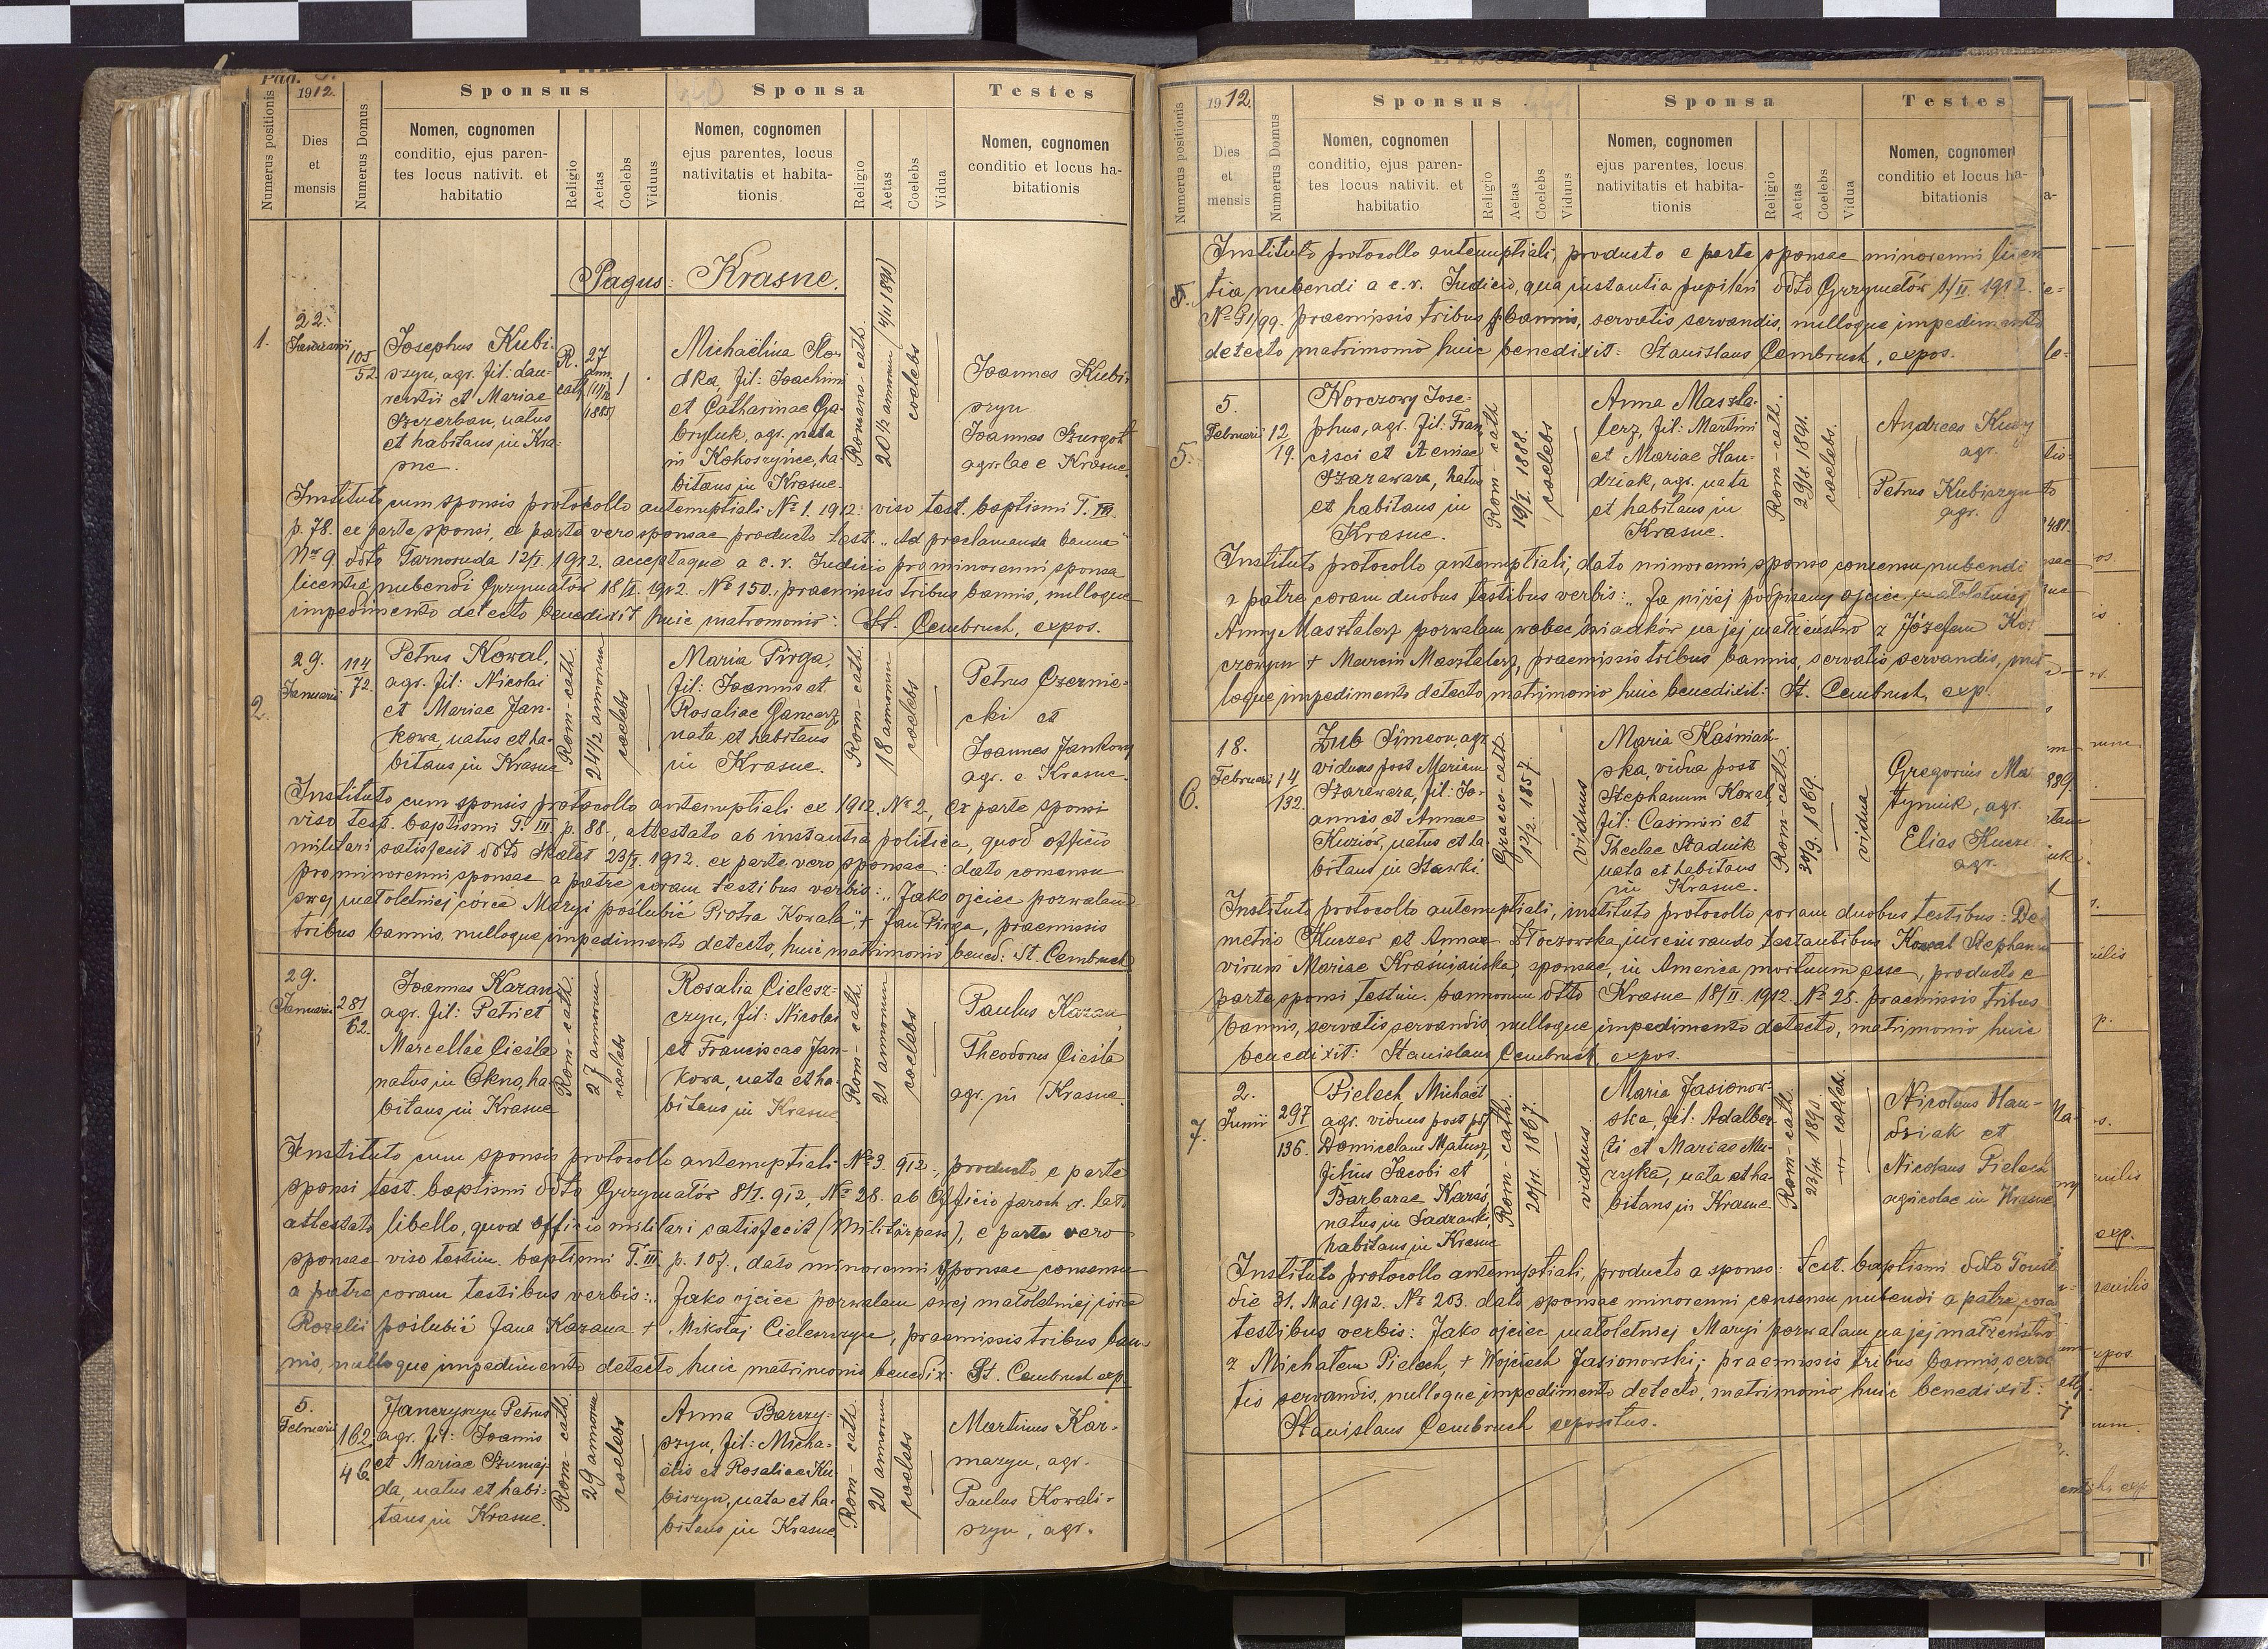 Pag.
1912.
Numerus positionis
Dies
et
mensis
Numerus Domus
Sponsus
Nomen, cognomen
conditio, ejus paren-
tes locus nativit. et
habitatio
Religio
Aetas
Coelebs
Viduus
Sponsa
Nomen, cognomen
ejus parentes, locus
nativitatis et habita-
tionis
Religio
Aetas
Coelebs
Vidua
Testes
Nomen, cognomen
conditio et locus ha-
bitationis
Pagus: Krasne.
1.
22.
Januarii
105
52
Josephus Kubi-
szyn, agr. fil: Lau-
rentii et Mariae
Szczerban, natus
et habitans in Kra-
sne.
R.
cath.
27
ann.
1885
Michaëlina
dka, fil: Joachimi
et Catharinae Ga-
bryluk, agr. nata
in Kokoszyńce, ha-
bitans in Krasne.
Romano-cath.
20 1/2 annorum (4/11 1891)
coelebs
Joannes Kubi-
szyn
Joannes Szurgot
agricolae e Krasne
Instituto cum sponsis protocollo antenuptiali No 1. 1912. viso test. baptismi T. III.
p. 78. ex parte sponsi, ex parte vero sponsae producto test. „Ad proclamanda banna"
Nro 9 ddto Tarnoruda 12/I. 1912. acceptaque a c. r. Judicio pro minorenni sponsa
licentia nubendi Grzymałów 18/I. 1912. No 150., praemissis tribus bannis, nulloque
impedimento detecto benedixit huic matromonio: St. Cembruch, expos.
2.
29.
Januarii
114
72.
Petrus Kowal,
agr. fil: Nicolai
et Mariae Jan-
kowa, natus et ha-
bitans in Krasne
Rom-cath.
24 1/2 annorum
coelebs
Maria Pirga,
fil: Joannis et
Rosaliae Gancarz,
nata et habitans
in Krasne.
Rom-cath.
18 annorum
coelebs
Petrus Czernie-
cki et
Joannes Jankowy
agr. e Krasne.
Instituto cum sponsis protocollo antenuptiali ex 1912. No 2., ex parte sponsi
viso test. baptismi T. III. p. 88., attestato ab instantia politica, quod officio
militari satisfecit ddto Skałat 23/I. 1912. ex parte vero sponsae: dato consensu
pro minorenni sponsae a patre coram testibus verbis: „Jako ojciec pozwalam
swej małoletniej córce Maryi poślubić Piotra Kowala", + Jan Pirga, praemissis
tribus bannis, nulloque impedimento detecto, huic matrimonio bened: St. Cembruch
3
29.
Januarii
281
62.
Joannes Kazan,
agr. fil: Petri et
Marcellae Cieśla
natus in Okno, ha-
bitans in Krasne
Rom-cath.
27 annorum
coelebs
Rosalia Cielesz-
czyn, fil: Nicolai
et Franciscae Jan-
kowa, nata et ha-
bitans in Krasne
Rom-cath.
21 annorum
coelebs
Paulus Kazan
Theodorus Cieśla
agr. in Krasne.
Instituto cum sponsis protocollo antenuptiali No 3. 912., producto e parte
sponsi test. baptismi ddto Grzymałów 8/I. 912, No 28. ab Officio paroch r. lat.
attestato libello, quod officio militari satisfecit (Militärpass), e parte vero
sponsae viso testim. baptismi T. III. p. 107., dato minorenni sponsae consensu
a patre coram testibus verbis: „Jako ojciec pozwalam swej małoletniej córce
Rozalii poślubić Jana Kazana + Mikołaj Cieleszczyn, praemissis tribus ban-
nis, nulloque impedimento detecto huic matrimonio benedix: St. Cembruch exp.
5.
Februarii
162.
46
Janczyszyn Petrus
agr. fil: Joannis
et Mariae Szumaj-
da, natus et habi-
tans in Krasne.
Rom-cath.
29 annorum
coelebs
Anna Barczy-
szyn, fil: Micha-
ëlis et Rosaliae Ku-
biszyn, nata et ha-
bitans in Krasne
Rom-cath.
20 annorum
coelebs
Martinus Kar-
mazyn, agr.
Paulus Kowali-
szyn, agr.
1912.
Numerus positionis
Dies
et
mensis
Numerus Domus
Sponsus
Nomen, cognomen
conditio, ejus paren-
tes locus nativit. et
habitatio
Religio
Aetas
Coelebs
Viduus
Sponsa
Nomen, cognomen
ejus parentes, locus
nativitatis et habita-
tionis
Religio
Aetas
Coelebs
Vidua
Testes
Nomen, cognomen
conditio et locus ha-
bitationis
Instituto protocollo antenuptiali, producto e parte sponsae minorenni licen
tia nubendi a c. r. Judicio, qua instantia pupilari ddto Grzymałów 1/II. 1912.
praemissis tribus bannis, servatis servandis, nulloque impedimento
detecto matrimonio huic benedixit: Stanislaus Cembruch, expos.
5.
5.
Februarii
12
19.
Korczowy Jose-
phus, agr. fil: Fran-
cisci et Xeniae
Szarawara, natus
et habitans in
Krasne.
Rom-cath
19/I. 1888.
coelebs
Anna Maszta-
lerz, fil: Martini
et Mariae Han-
dziak, agr. nata
et habitans in
Krasne.
Rom-cath.
29/8. 1891.
coelebs.
Andreas
agr.
Petrus Kubiszyn
agr.
Instituto protocollo antenuptiali, dato minorenni sponso consensu nubendi
a patre coram duobus testibus verbis: „Ja niżej podpisany ojciec małoletniej
Anny Masztalerz pozwalam wobec świadków na jej małżeństwo z Józefem Kor-
czowym + Marcin Masztalerz, praemissis tribus bannis, servatis servandis, nul-
loque impedimento detecto matrimonio huic benedixit: St. Cembruch, exp.
6.
18.
Februarii
14
132.
Zub Simeon, agr.
viduus post Mariam
Szarawara, fil: Jo-
annis et Annae
Kuziów, natus et ha-
bitans in Stawki.
Graeco-cath.
12/2. 1857.
viduus
Maria Kaśniań-
ska, vidua post
Stephanum Kowal,
fil: Casimiri et
Theclae Stadnik
nata et habitans
in Krasne.
Rom-cath.
30/9. 1869.
vidua
Gregorius Ma-
tyniuk, agr.
Elias
agr.
Instituto protocollo antenuptiali, instituto protocollo coram duobus testibus: De-
metrio Kuczer et Annae Złoczowska, jureiurando testantibus Kowal Stephanum
virum Mariae Kraśniańska, sponsae, in America mortuum esse, producto e
parte sponsi testim. bannorum ddto Krasne 18/II. 1912. No 28. praemissis tribus
bannis, servatis servandis nulloque impedimento detecto, matrimonio huic
benedixit: Stanislaus Cembruch, expos.
7.
2.
Junii
297
136.
Pielech Michaël
agr. viduus post
Domicelam Matusz,
filius Jacobi et
Barbarae Karaś,
natus in Sadzawki,
habitans in Krasne
Rom-cath.
20/11. 1867.
viduus
Maria Jasionow-
ska, fil: Adalber-
ti et Mariae Mu-
zyka, nata et ha-
bitans in Krasne.
Rom-cath.
23/4. 1890.
coeleb.
Nicolaus Han-
dziak et
Nicolaus Pielech
agricolae in Krasne
Instituto protocollo antenuptiali, producto a sponso: Test. baptismi ddto Toust
die 31. Mai 1912. No 203. dato sponsae minorenni consensu nubendi a patre, cora
testibus verbis: Jako ojciec małoletniej Maryi pozwalam na jej małżeństwo
z Michałem Pielech, + Wojciech Jasionowski; praemissis tribus bannis, serva
tis servandis, nulloque impedimento detecto, matrimonio huic benedixit:
Stanislaus Cembruch expositus.